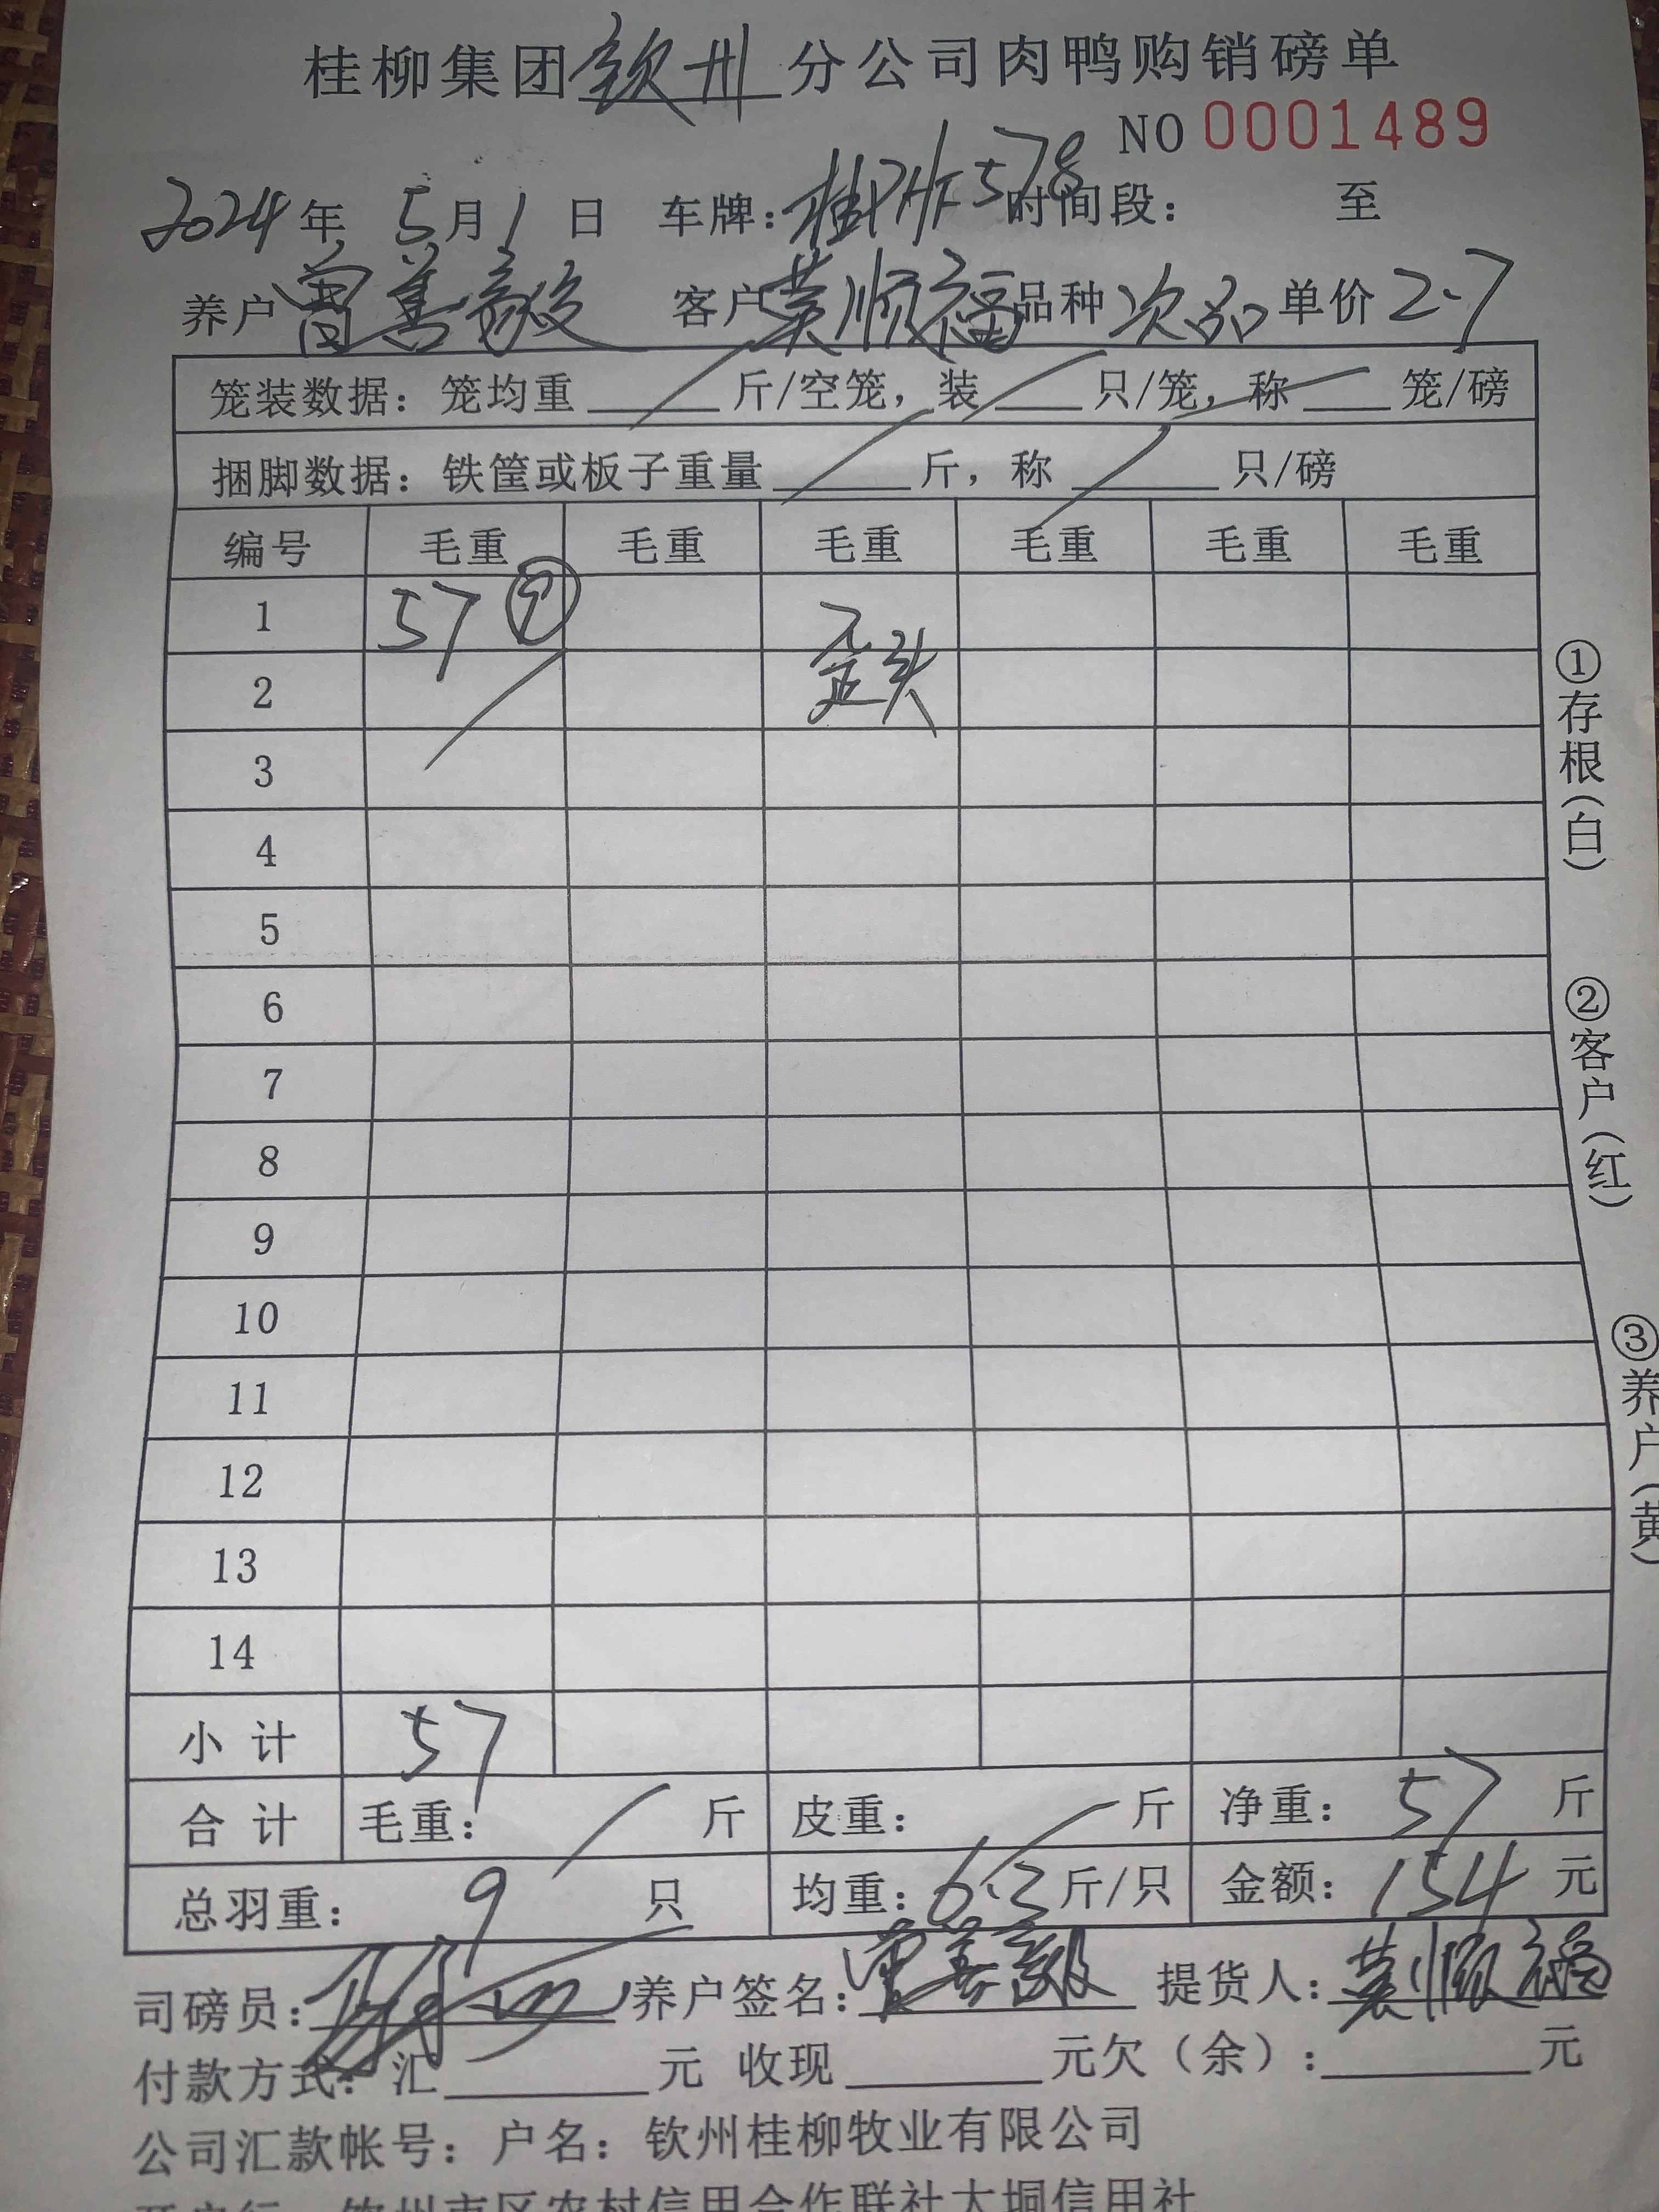 桂柳集团钦州分公司肉鸭购销磅单
NO 0001489
2024年 5月1日 车牌: 578 时间段: 至
养户 曾善毅 客户 莫顺福 品种 次品 单价 2.7
笼装数据: 笼均重 斤/空笼, 装 只/笼, 称 笼/磅
捆脚数据: 铁筐或板子重量 斤, 称 只/磅
编号 毛重 毛重 毛重 毛重 毛重 毛重
1 57 ⑨
2 歪头
3
4
5
6
7
8
9
10
11
12
13
14
小计 57
合计 毛重: 斤 皮重: 斤 净重: 57 斤
总羽重: 9 只 均重: 6.3 斤/只 金额: 154 元
司磅员: 养户签名: 曾善毅 提货人: 莫顺福
付款方式: 汇 元 收现 元欠(余): 元
公司汇款帐号: 户名: 钦州桂柳牧业有限公司
开户行: 钦州市区农村信用合作联社大垌信用社
①存根(白)
②客户(红)
③养户(黄)